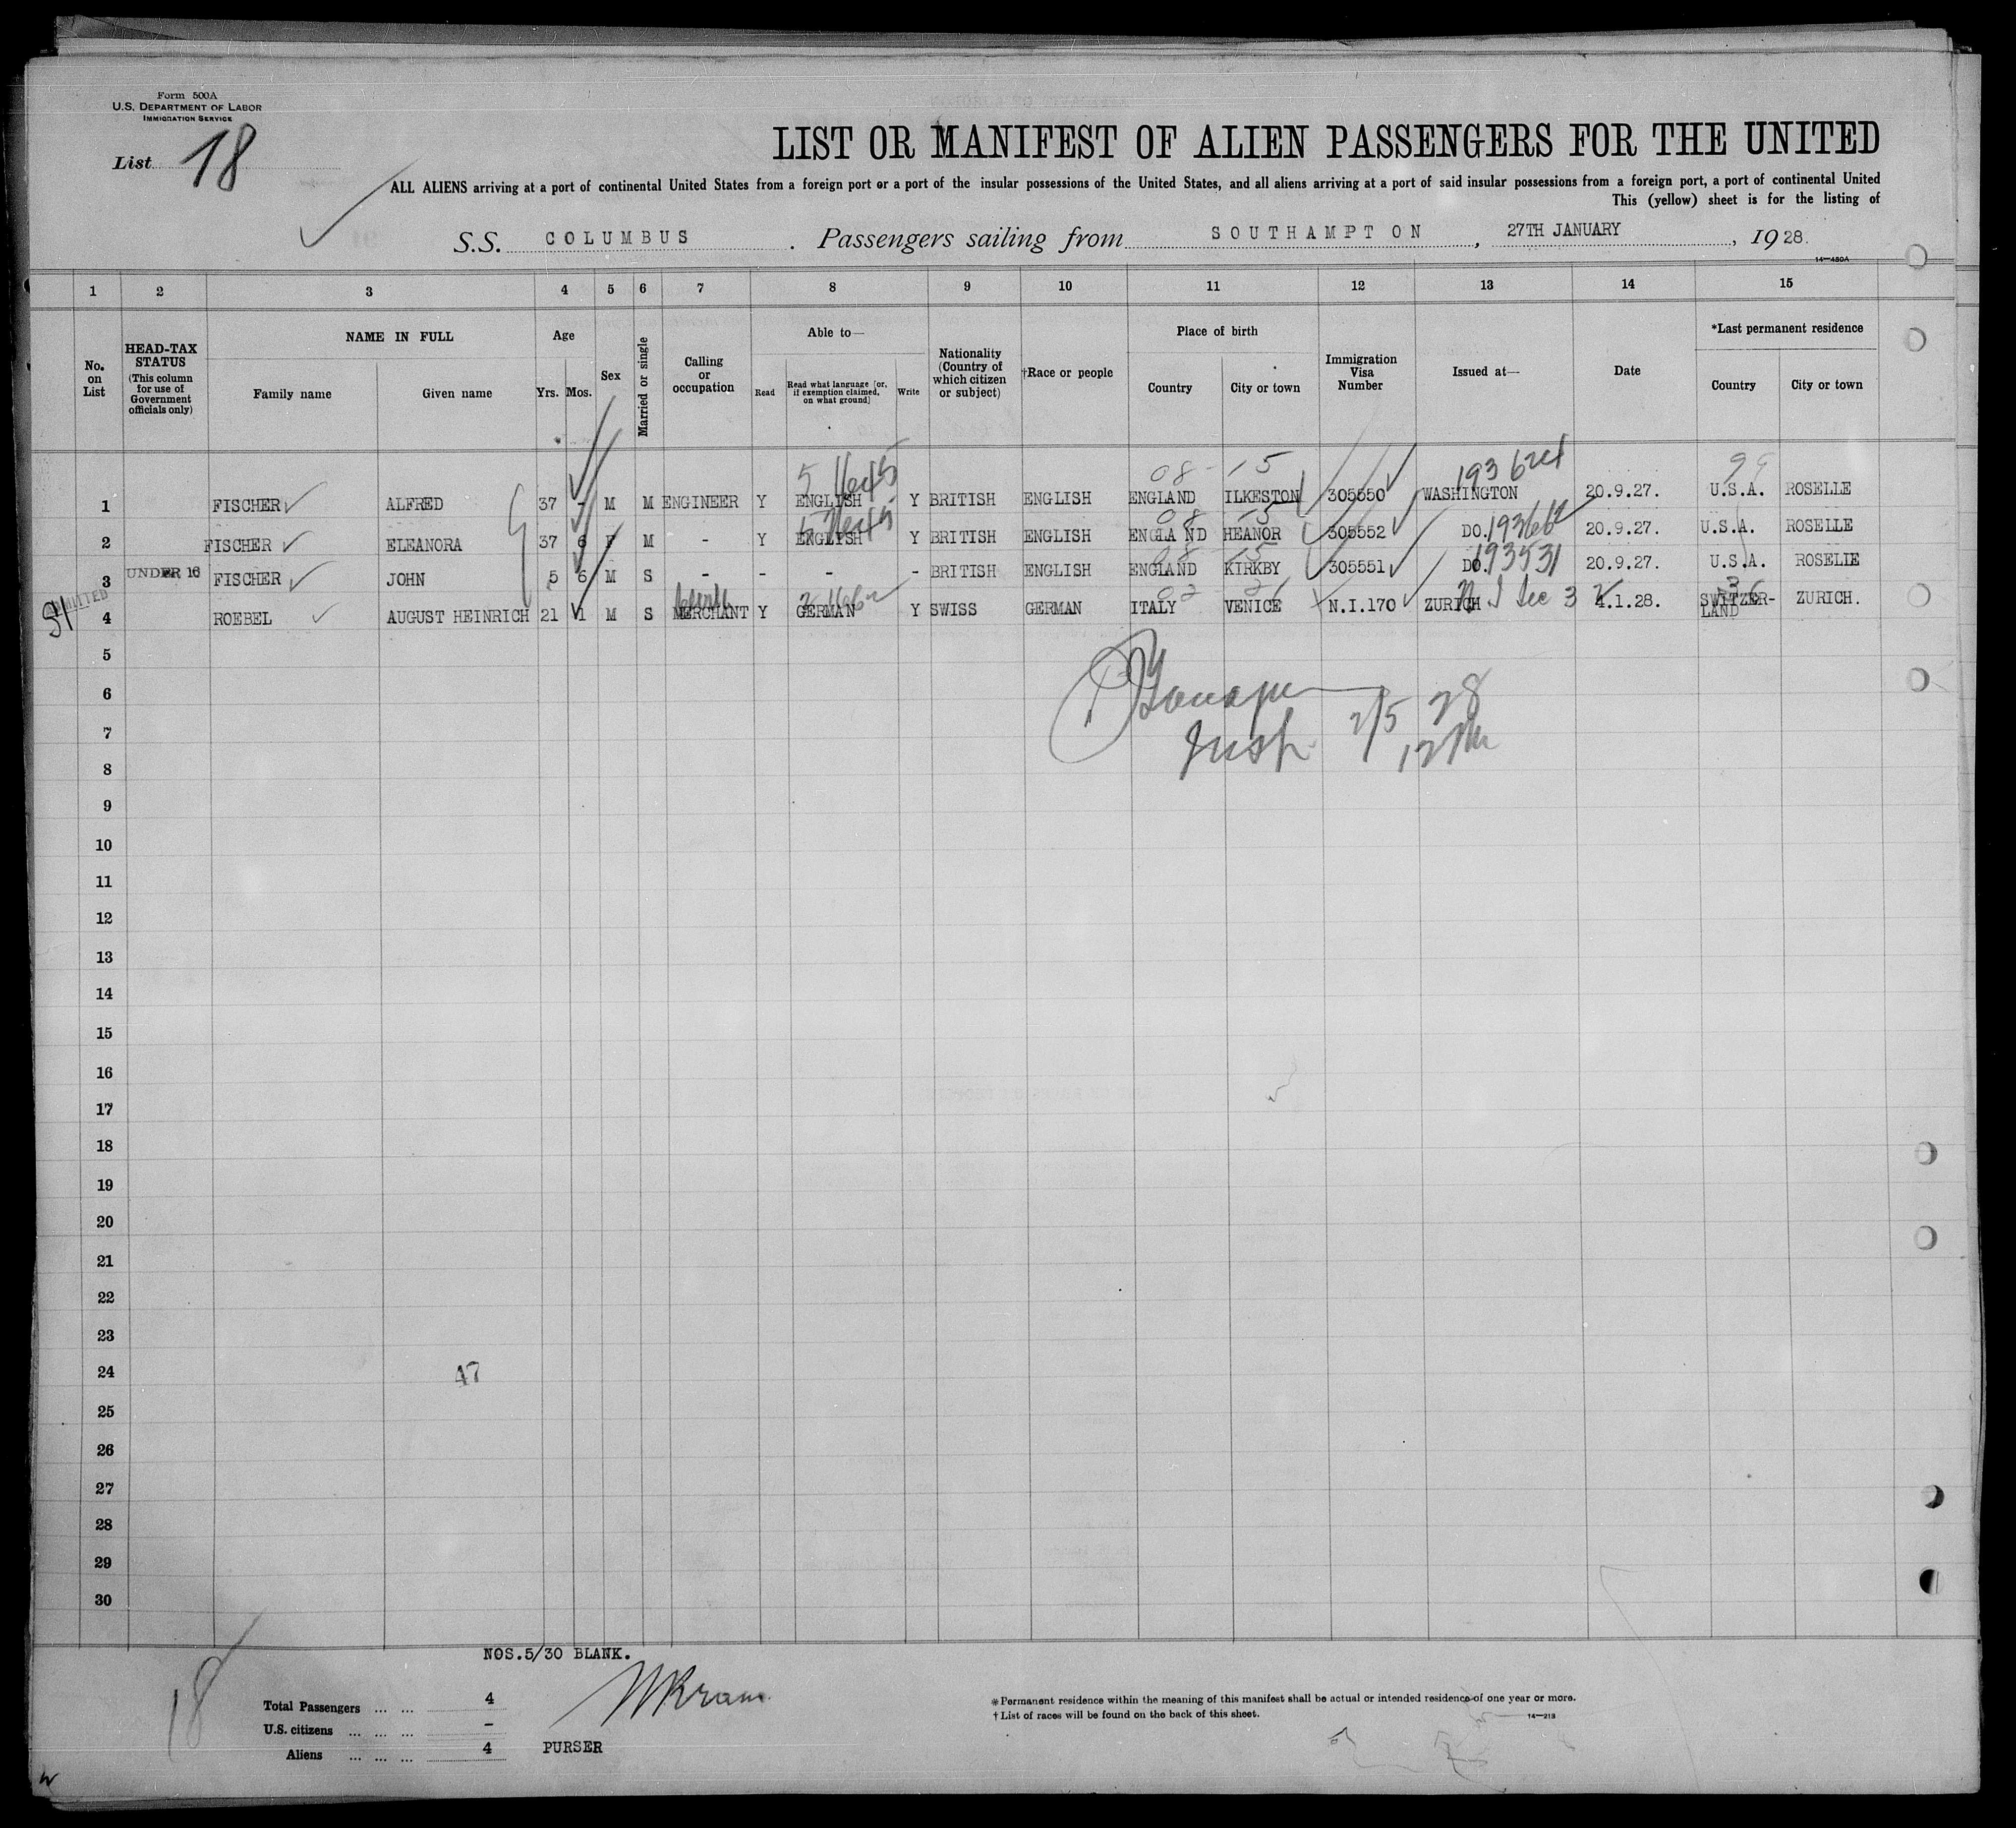 Form 500A
U.S. DEPARTMENT OF LABOR
IMMIGRATION SERVICE
List 18
LIST OR MANIFEST OF ALIEN PASSENGERS FOR THE UNITED
ALL ALIENS arriving at a port of continental United States from a foreign port or a port of the insular possessions of the United States, and all aliens arriving at a port of said insular possessions from a foreign port, a port of continental United
This (yellow) sheet is for the listing of
S.S. COLUMBUS . Passengers sailing from SOUTHAMPTON , 27TH JANUARY , 1928.
14—480A
1 2 3 4 5 6 7 8 9 10 11 12 13 14 15
No. on List
HEAD-TAX STATUS (This column for use of Government officials only)
NAME IN FULL
Family name Given name
Age
Yrs. Mos.
Sex
Married or single
Calling or occupation
Able to—
Read
Read what language [or, if exemption claimed, on what ground]
Write
Nationality (Country of which citizen or subject)
†Race or people
Place of birth
Country City or town
Immigration Visa Number
Issued at—
Date
*Last permanent residence
Country City or town
08 - 15 99
1 FISCHER ALFRED 37 - M M ENGINEER Y ENGLISH Y BRITISH ENGLISH ENGLAND ILKESTON 305550 WASHINGTON 20.9.27. U.S.A. ROSELLE
08 15
2 FISCHER ELEANORA 37 6 F M - Y ENGLISH Y BRITISH ENGLISH ENGLA ND HEANOR 305552 DO. 20.9.27. U.S.A. ROSELLE
08 15
UNDER 16
3 FISCHER JOHN 5 6 M S - - - - BRITISH ENGLISH ENGLAND KIRKBY 305551 DO. 193531 20.9.27. U.S.A. ROSELLE
ADMITTED
4 ROEBEL AUGUST HEINRICH 21 1 M S MERCHANT Y GERMAN Y SWISS GERMAN ITALY VENICE N.I.170 ZURICH 4.1.28. SWITZER-LAND ZURICH.
5
6
2/5 28
7
Insp.
8
9
10
11
12
13
14
15
16
17
18
19
20
21
22
23
24 47
25
26
27
28
29
30
NOS.5/30 BLANK.
18
Total Passengers ... ... 4
U.S. citizens ... ... ... -
Aliens ... ... ... 4
PURSER
*Permanent residence within the meaning of this manifest shall be actual or intended residence of one year or more.
†List of races will be found on the back of this sheet.
14—213